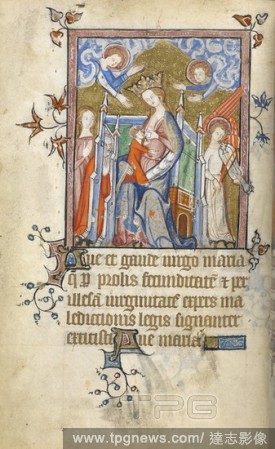 Aue et gaude uirgo maria
q̄ ꝑ prolis fecunditatē ⁊ per
illesā uirginitatē expers ma
ledictionis legis signanter
extitisti Aue maria
TPG
www.tpgnews.com/ 達志影像